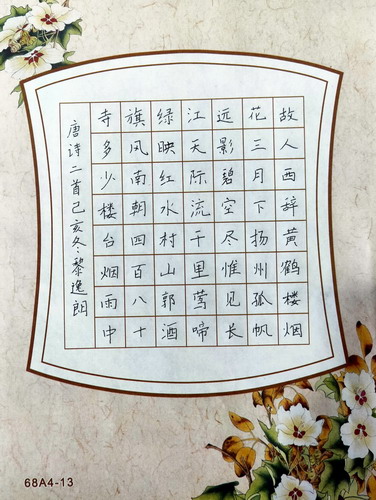 故人西辞黄鹤楼烟
花三月下扬州孤帆
远影碧空尽惟见长
江天际流千里莺啼
绿映红水村山郭酒
旗风南朝四百八十
寺多少楼台烟雨中
唐诗二首己亥冬黎逸朗
68A4-13